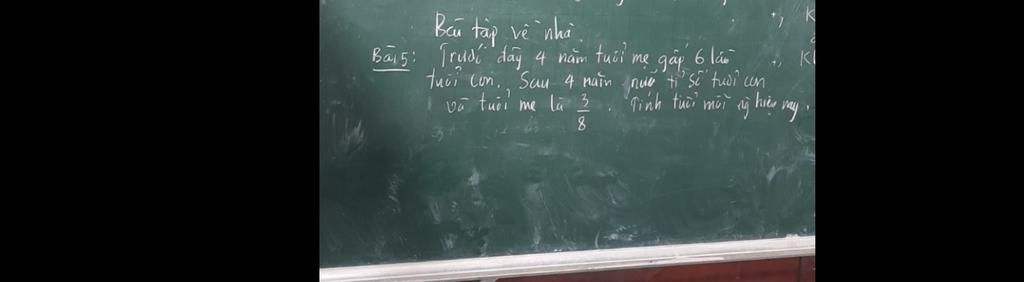 Bài tập về nhà.
Bài 5: Trước đây 4 năm tuổi mẹ gấp 6 lần
tuổi con. Sau 4 năm nữa tỉ số tuổi con
và tuổi mẹ là 3/8. Tính tuổi mỗi ng hiện nay.